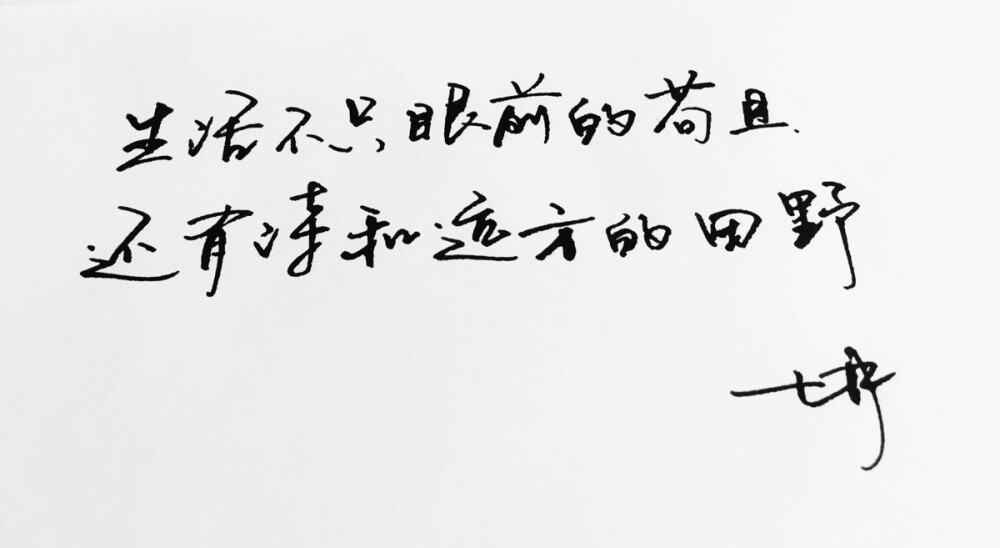 生活不只眼前的苟且.
还有诗和远方的田野